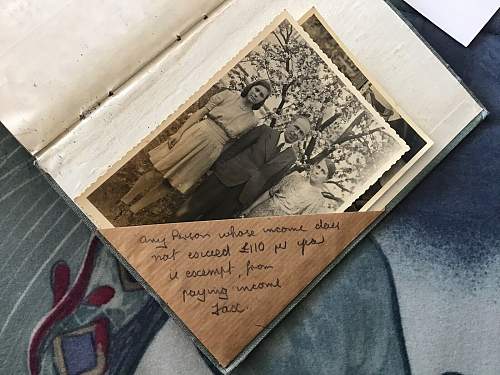 any Person whose income does
not exceed £110 per year
is exempt, from
paying income
Tax.